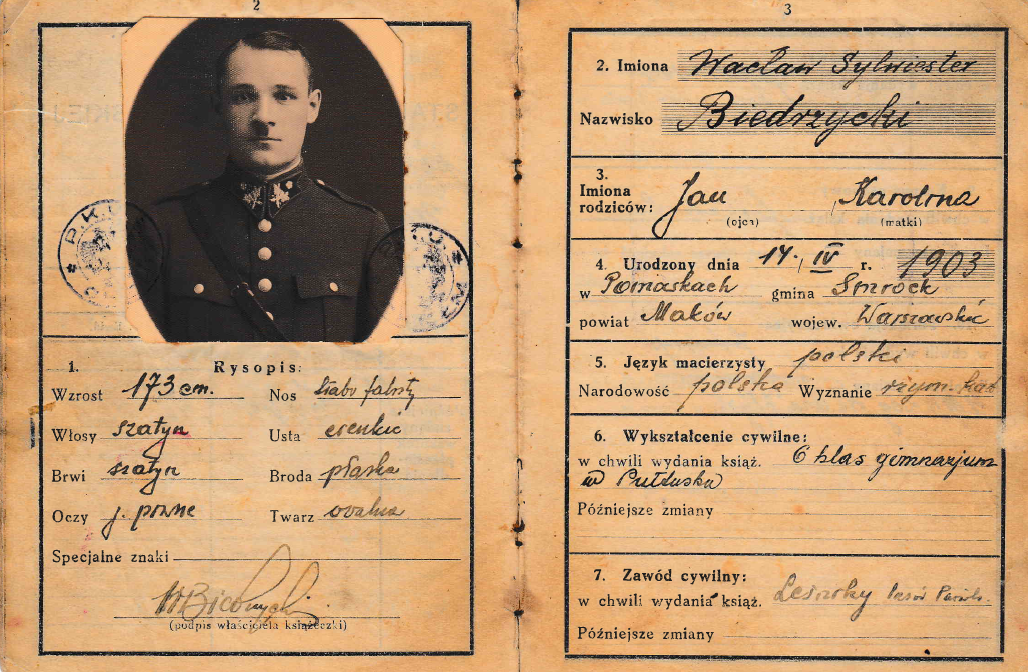 2
P.K.U
1. Rysopis:
Wzrost 173 cm. Nos słabo falisty
Włosy szatyn Usta cienkie
Brwi szatyn Broda płaska
Oczy j. piwne Twarz owalna
Specjalne znaki
(podpis właściciela książeczki)
3
2. Imiona Wacław Sylwester
Nazwisko Biedrzycki
3.
Imiona
rodziców: Jan Karolina
(ojca) (matki)
4 Urodzony dnia 14. IV r. 1903
w Pomaskach gmina Smrock
powiat Maków wojew. Warszawskie
5. Język macierzysty polski
Narodowość polska Wyznanie rzym. kat
6. Wykształcenie cywilne:
w chwili wydania książ. 6 klas gimnazjum
w Pułtusku
Późniejsze zmiany
7. Zawód cywilny:
w chwili wydania książ.
Późniejsze zmiany